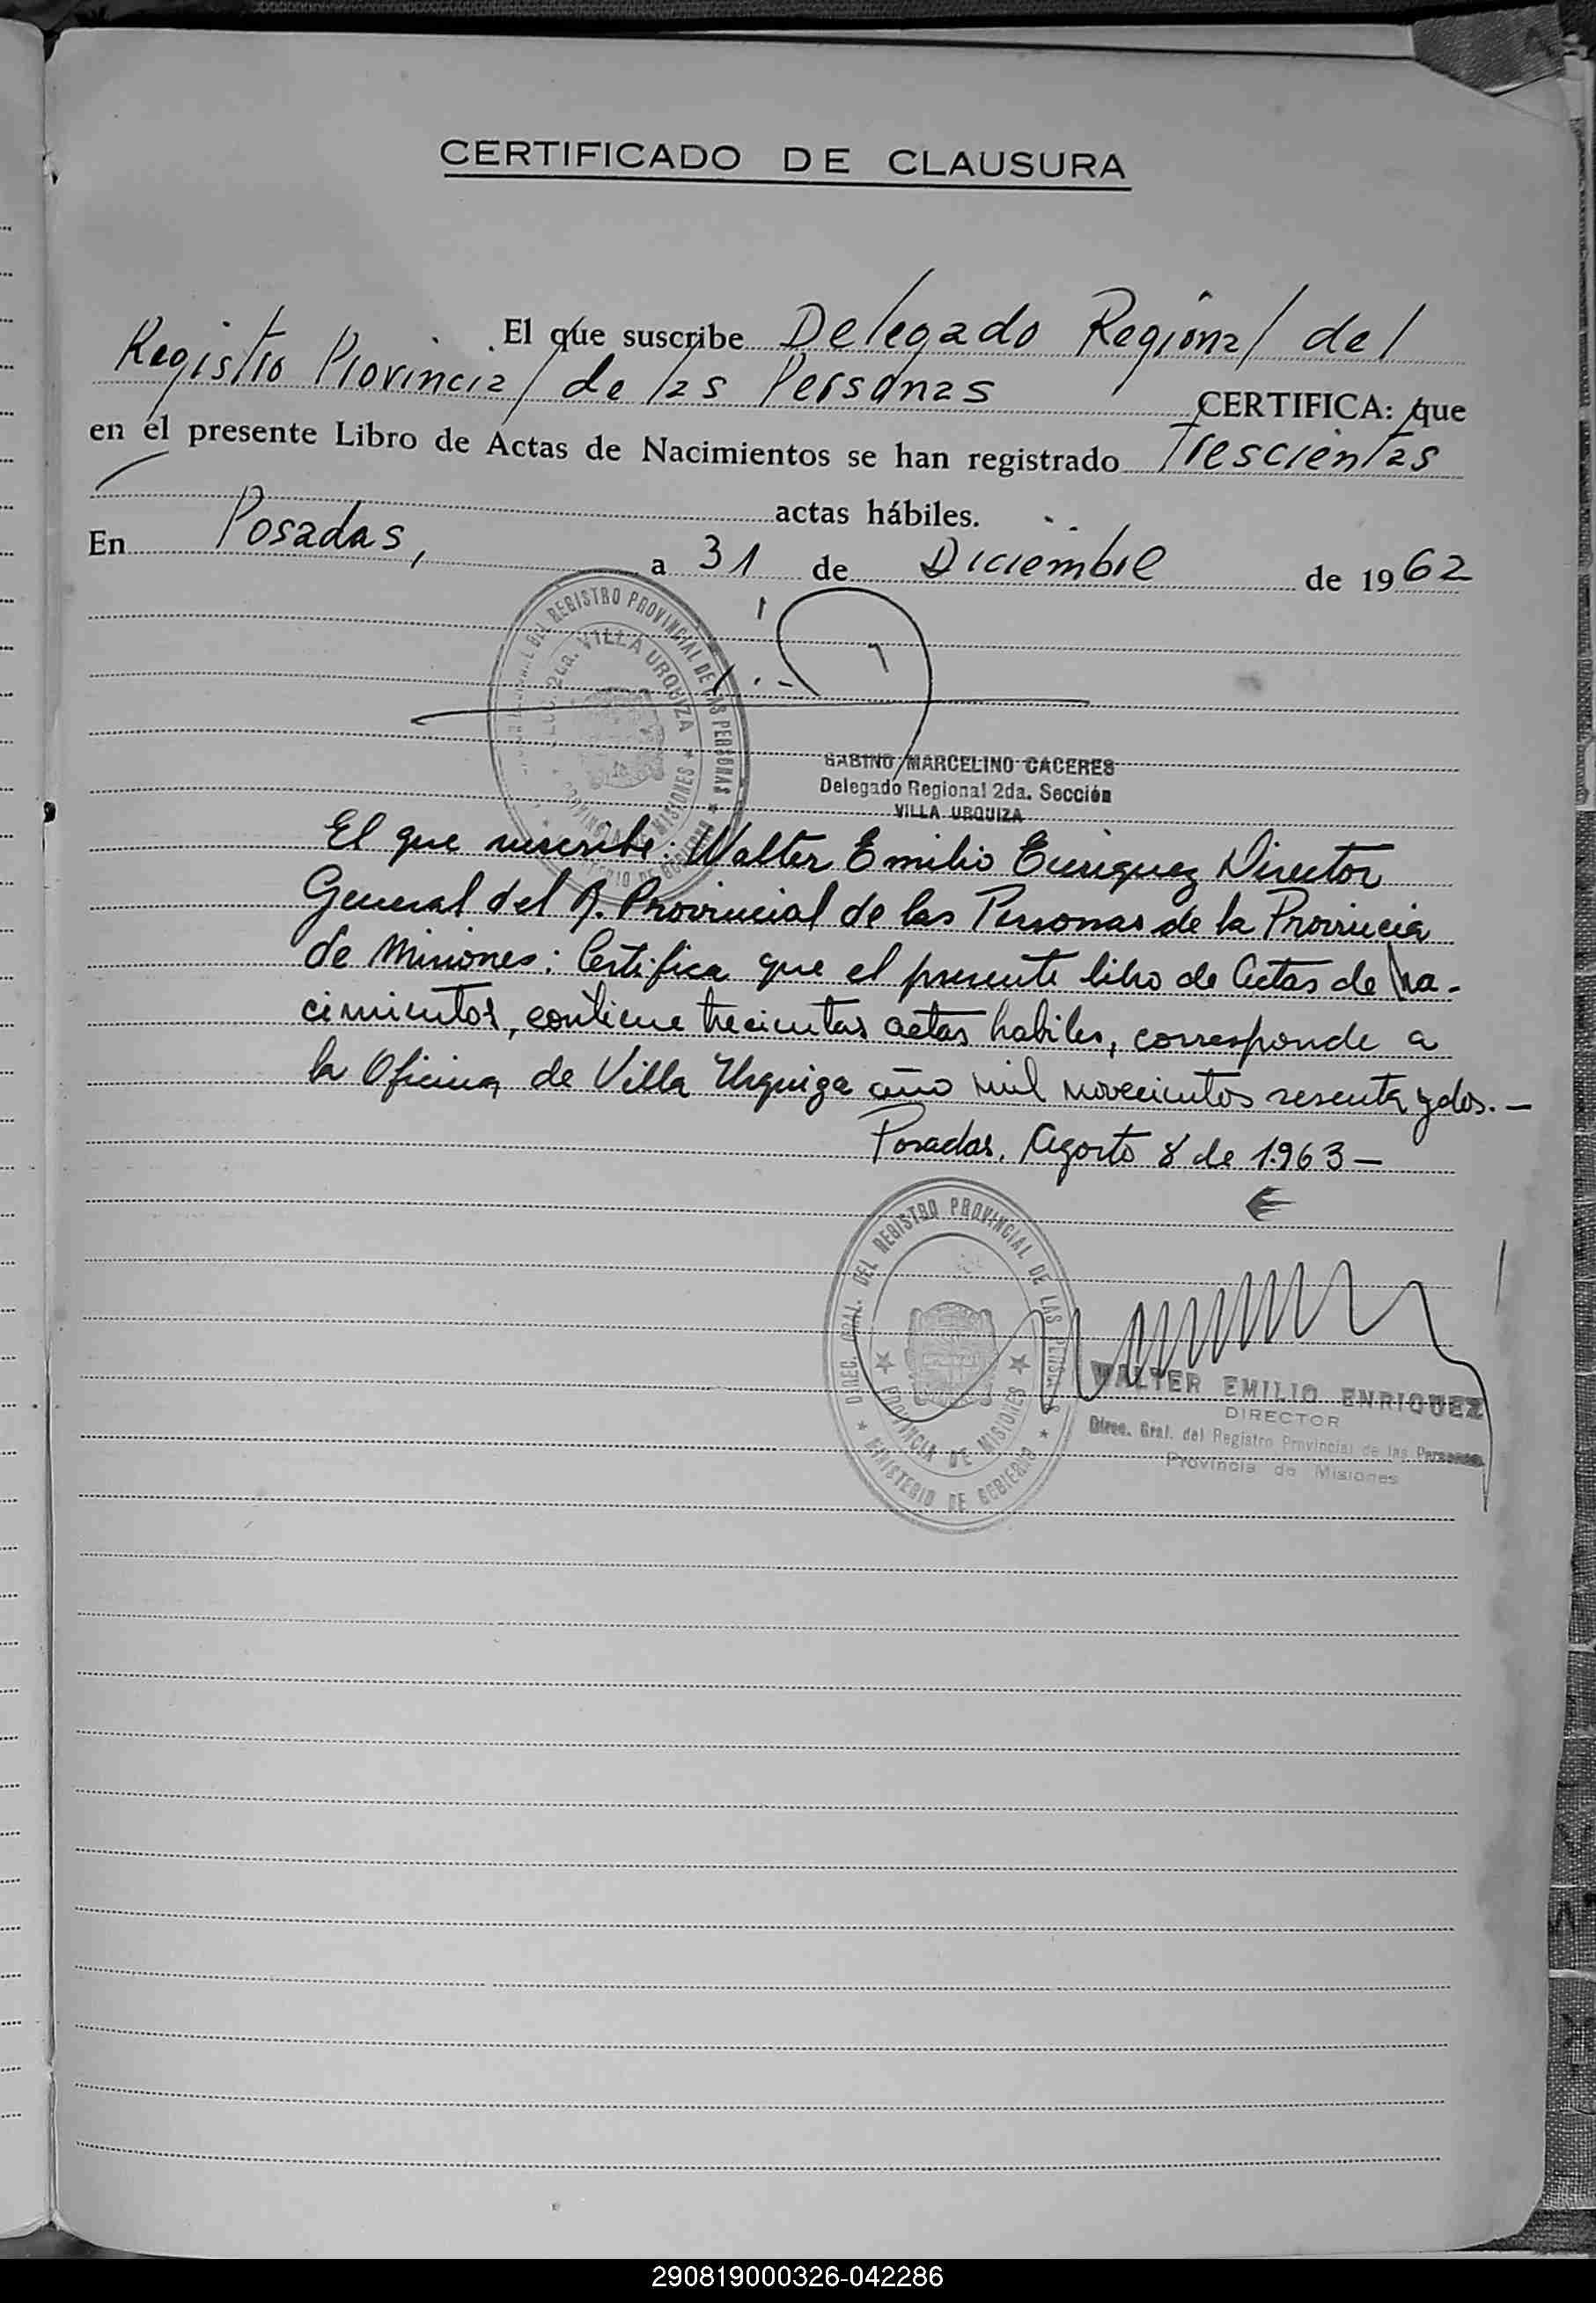 CERTIFICADO DE CLAUSURA
El que suscribe Delegado Regional del
Registro Provincial de las Personas CERTIFICA: que
en el presente Libro de Actas de Nacimientos se han registrado Trescientas
actas hábiles.
En Posadas, a 31 de Diciembre de 1962
DEL REGISTRO PROVINCIAL DE LAS PERSONAS
2da. VILLA URQUIZA
PROVINCIA DE MISIONES
SABINO MARCELINO CACERES
Delegado Regional 2da. Sección
VILLA URQUIZA
El que suscribe: Walter Emilio Enriquez Director
General del R. Provincial de las Personas de la Provincia
de Misiones: Certifica que el presente libro de Actas de Na-
cimientos, contiene trecientas actas habiles, corresponde a
la Oficina de Villa Urquiza año mil novecientos sesenta y dos.—
Posadas, Agosto 8 de 1.963—
DIREC. GRAL. DEL REGISTRO PROVINCIAL DE LAS PERSONAS
PROVINCIA DE MISIONES
MINISTERIO DE GOBIERNO
WALTER EMILIO ENRIQUEZ
DIRECTOR
Direc. Gral. del Registro Provincial de las Personas
Provincia de Misiones
290819000326-042286